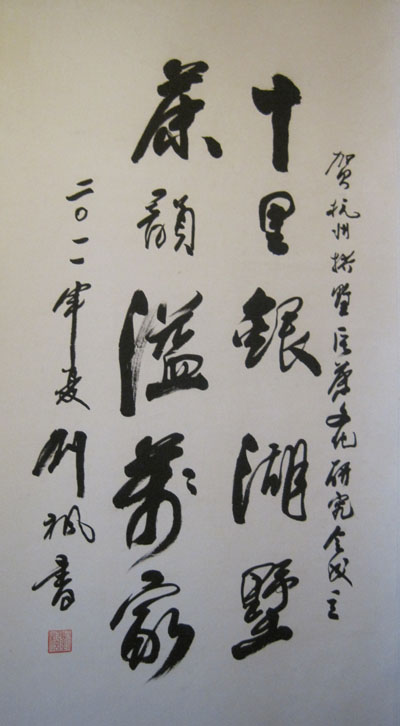 贺杭州拱墅区茶文化研究会成立
十里银湖墅
茶韵溢万家
二〇一一年夏
刘枫书